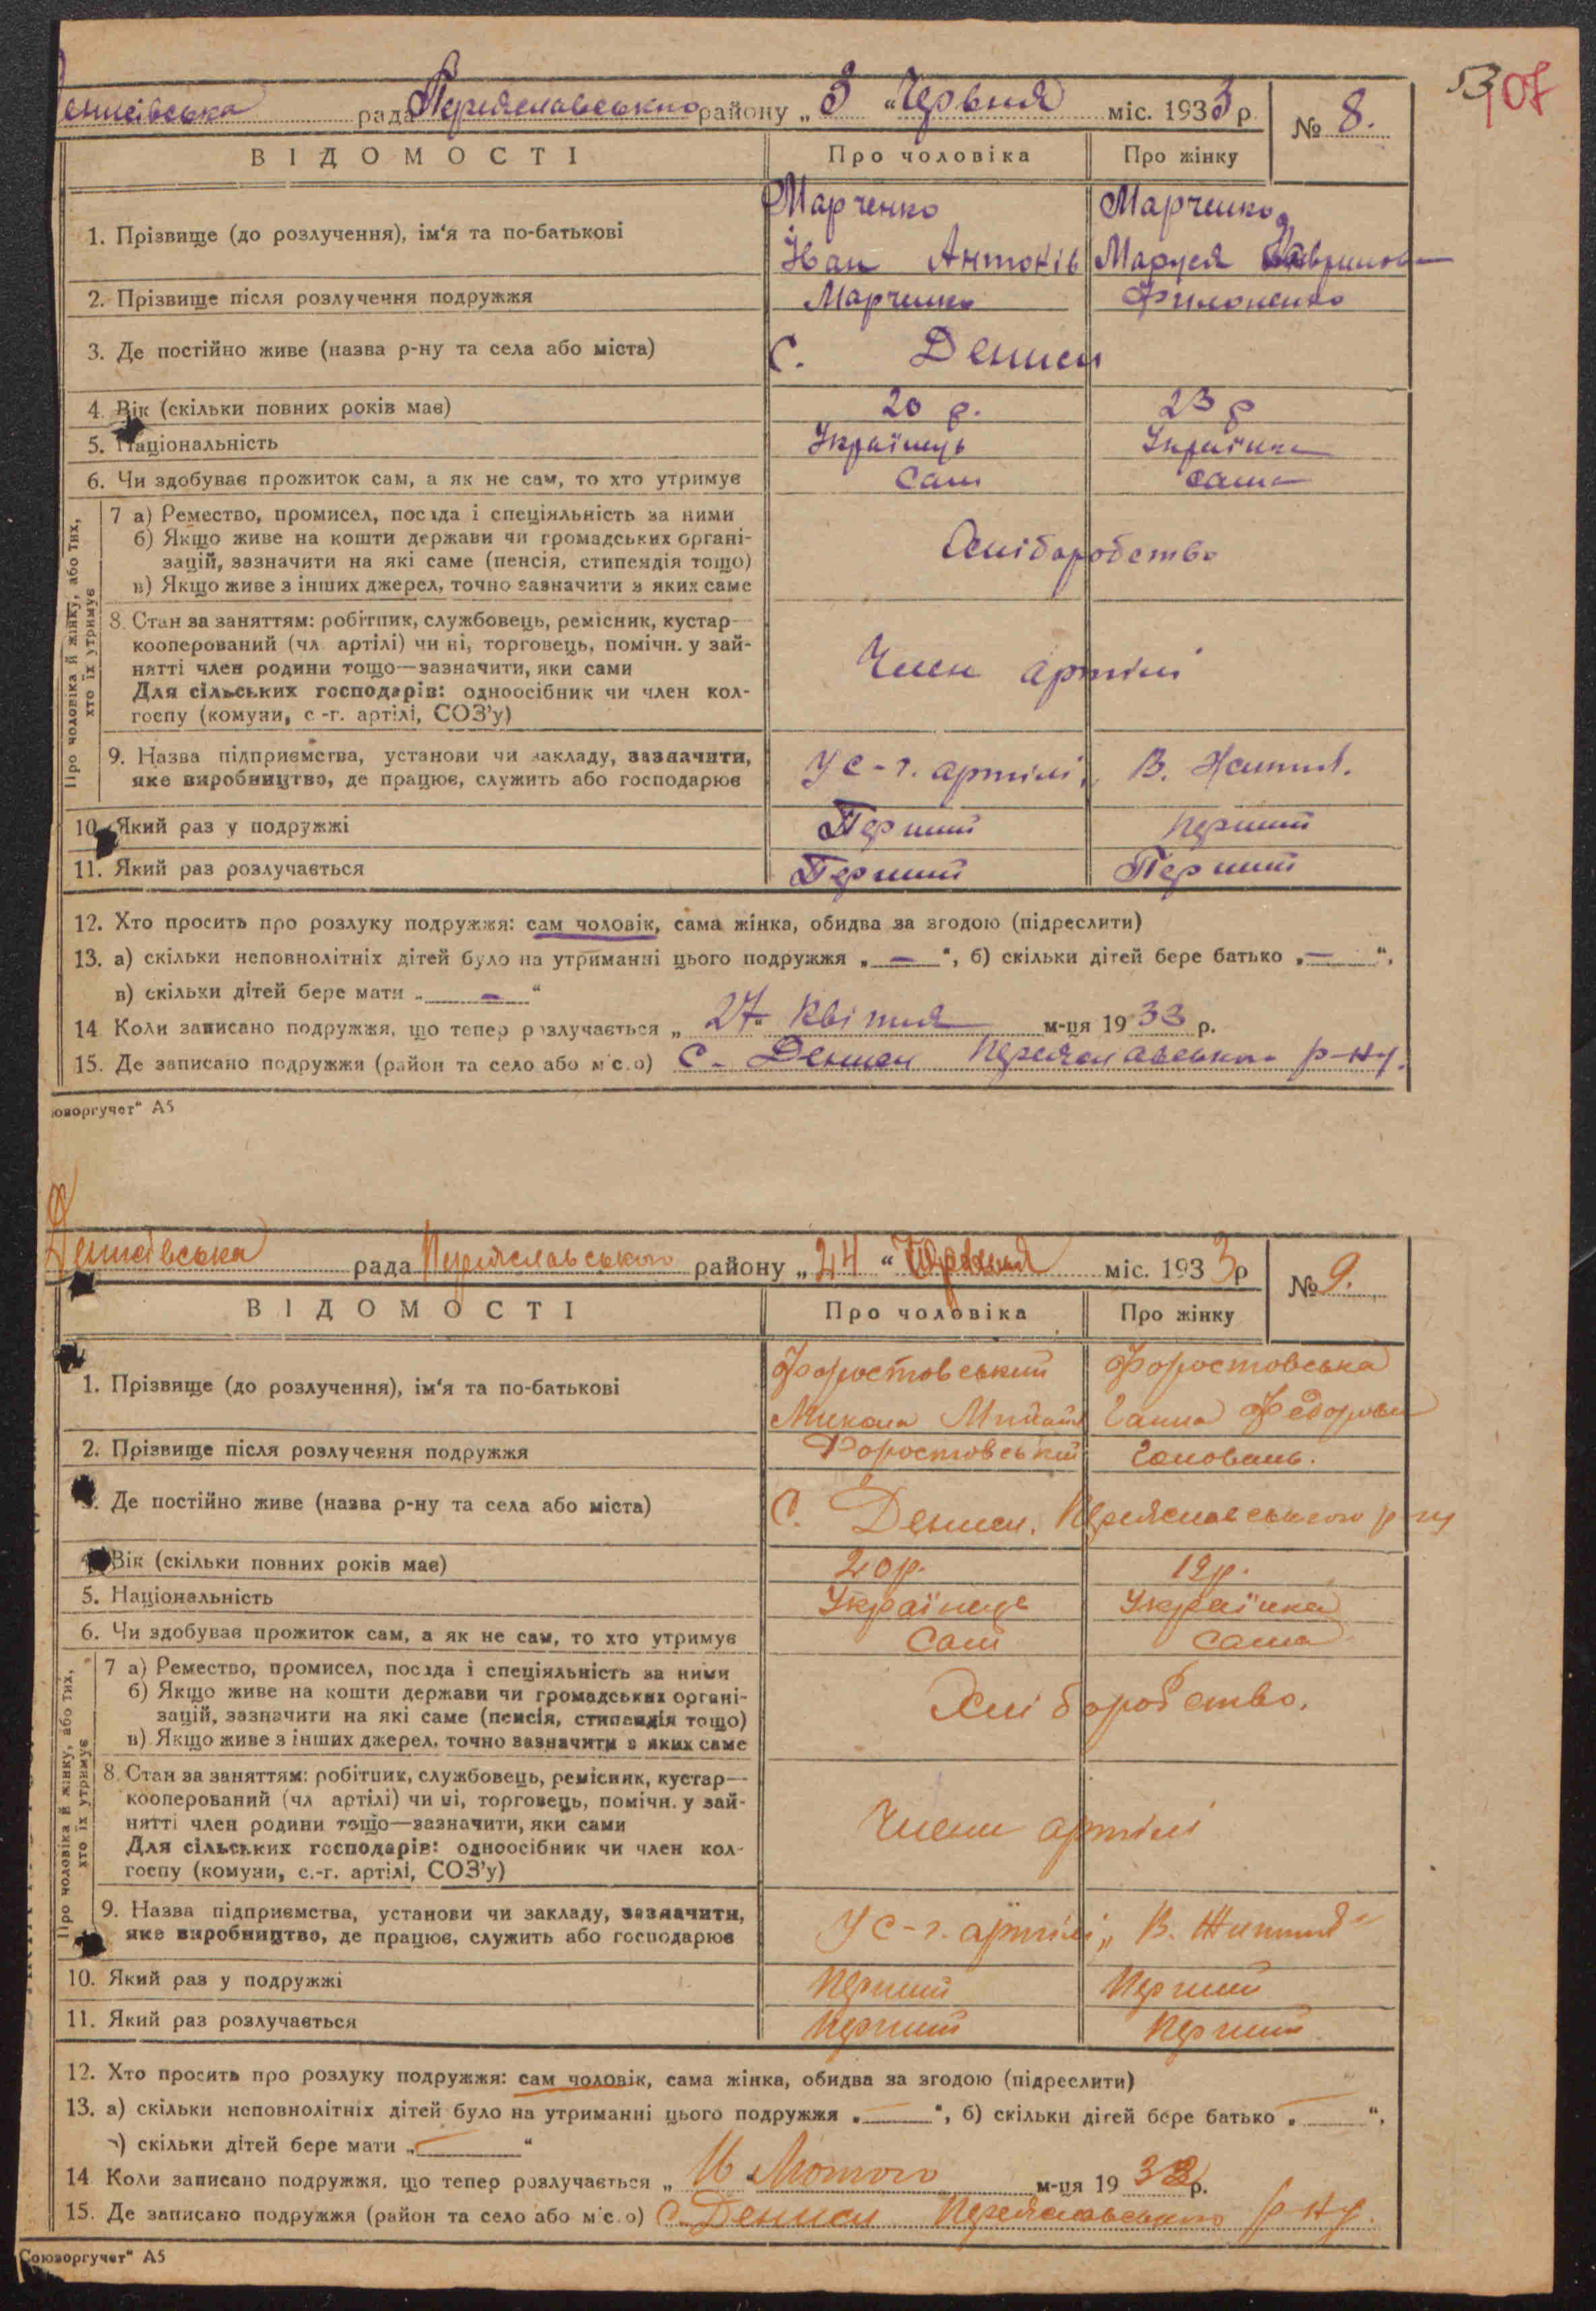 53 107
Денисівська рада Переяславського району „ 3 “ Червня міс. 1933 р. № 8.
ВІДОМОСТІ Про чоловіка Про жінку
Марченко Марченко
1. Прізвище (до розлучення), ім'я та по-батькові
Іван Антонів Маруся
2. Прізвище після розлучення подружжя Марченко Филоненко
3. Де постійно живе (назва р-ну та села або міста) С. Дениси
4. Вік (скільки повних років має) 20 р. 23 р
5. Національність Українець Українка
6. Чи здобуває прожиток сам, а як не сам, то хто утримує Сам сама
Про чоловіка й жінку, або тих, хто їх утримує
7 а) Ремество, промисел, посада і спеціяльність за ними
б) Якщо живе на кошти держави чи громадських органі-
зацій, зазначити на які саме (пенсія, стипендія тощо)
в) Якщо живе з інших джерел, точно зазначити з яких саме
Хліборобство
8. Стан за заняттям: робітник, службовець, ремісник, кустар—
кооперований (чл. артілі) чи ні, торговець, помічн. у зай-
нятті член родини тощо—зазначити, яки сами
Для сільських господарів: одноосібник чи член кол-
госпу (комуни, с.-г. артілі, СОЗ'у)
Член артілі
9. Назва підприємства, установи чи закладу, зазначити,
яке виробництво, де працює, служить або господарює
У с-г. артілі, В. Життя.
10. Який раз у подружжі Перший Перший
11. Який раз розлучається Перший Перший
12. Хто просить про розлуку подружжя: сам чоловік, сама жінка, обидва за згодою (підреслити)
13. а) скільки неповнолітніх дітей було на утриманні цього подружжя „ — “, б) скільки дітей бере батько „ — “,
в) скільки дітей бере мати „ — “
14. Коли записано подружжя, що тепер розлучається „ 27 “ квітня м-ця 1933 р.
15. Де записано подружжя (район та село або місто) С. Дениси Переяславського р-ну.
оюзоргучет" А5
Денисівська рада Переяславського району „ 24 “ Червня міс. 1933 р № 9.
ВІДОМОСТІ Про чоловіка Про жінку
Форостовський Форостовська
1. Прізвище (до розлучення), ім'я та по-батькові
Микола Михайл Ганна Федорівн
2. Прізвище після розлучення подружжя Форостовський Головань.
3. Де постійно живе (назва р-ну та села або міста) С. Дениси, Переяславського р-ну
4. Вік (скільки повних років має) 20р. 19р.
5. Національність Українець Українка
6. Чи здобуває прожиток сам, а як не сам, то хто утримує Сам Сама
Про чоловіка й жінку, або тих, хто їх утримує
7 а) Ремество, промисел, посада і спеціяльність за ними
б) Якщо живе на кошти держави чи громадських органі-
зацій, зазначити на які саме (пенсія, стипендія тощо)
в) Якщо живе з інших джерел, точно зазначити з яких саме
Хліборобство.
8. Стан за заняттям: робітник, службовець, ремісник, кустар—
кооперований (чл артілі) чи ні, торговець, помічн. у зай-
нятті член родини тощо—зазначити, яки сами
Для сільських господарів: одноосібник чи член кол-
госпу (комуни, с.-г. артілі, СОЗ'у)
Члени артілі
9. Назва підприємства, установи чи закладу, зазначити,
яке виробництво, де працює, служить або господарює
У с-г. артілі „ В. Життя“
10. Який раз у подружжі Перший Перший
11. Який раз розлучається Перший Перший
12. Хто просить про розлуку подружжя: сам чоловік, сама жінка, обидва за згодою (підреслити)
13. а) скільки неповнолітніх дітей було на утриманні цього подружжя „ — “, б) скільки дітей бере батько „ — “,
в) скільки дітей бере мати „ — “
14 Коли записано подружжя, що тепер розлучається „ 16 Лютого м-ця 1933 р.
15. Де записано подружжя (район та село або місто) С. Дениси Переяславського р-ну.
Союзоргучет" А5